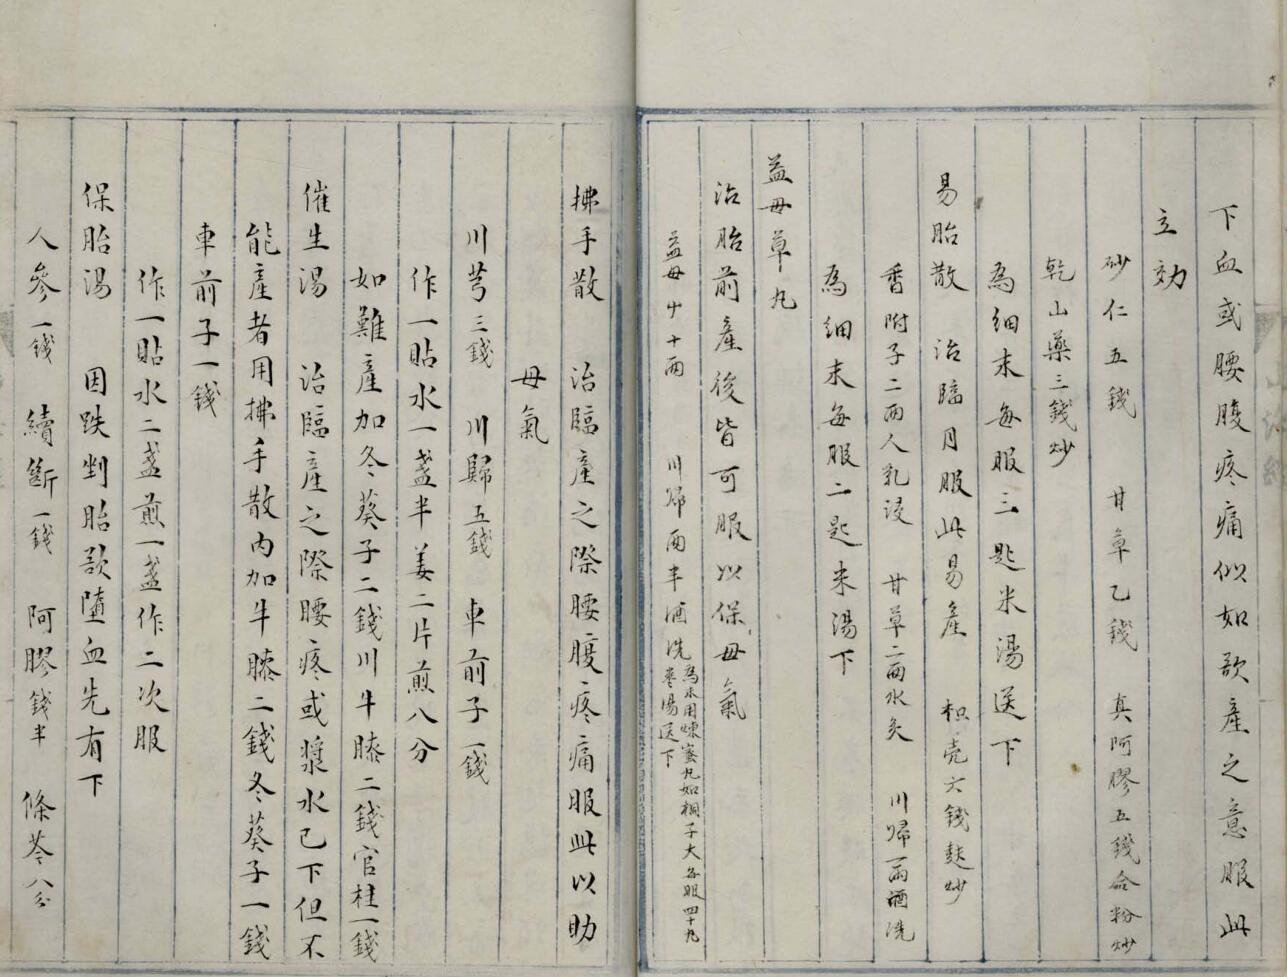 下血或腰腹疼痛似如欲產之意服此
立効
砂仁五錢 甘草乙錢 真阿膠五錢合粉炒
乾山藥三錢炒
為細末每服三匙米湯送下
易胎散 治臨月服此易產 枳壳六錢麸炒
香附子二两人乳浸 甘草二两水炙 川歸一兩酒洗
為細末每服二匙米湯下
益母草丸
治胎前產後皆可服以保母氣
益母艹十两 川歸两半酒洗 為末用煉蜜丸如桐子大每服四十丸
棗湯送下
拂手散 治臨產之際腰腹疼痛服此以助
母氣
川芎三錢 川歸五錢 車前子一錢
作一貼水一盞半姜二片煎八分
如難產加冬葵子二錢川牛膝二錢官桂一錢
催生湯 治臨產之際腰疼或漿水已下但不
能產者用拂手散内加牛膝二錢冬葵子一錢
車前子一錢
作一貼水二盞煎一盞作二次服
保胎湯 因跌剉胎欲墮血先有下
人參一錢 續斷一錢 阿膠錢半 條芩八分